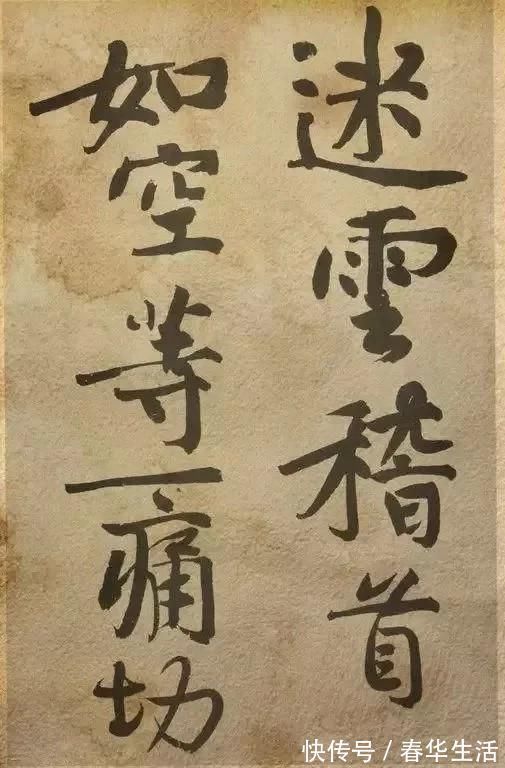 迷雲稽首
如空等一痛切
快传号/春华生活